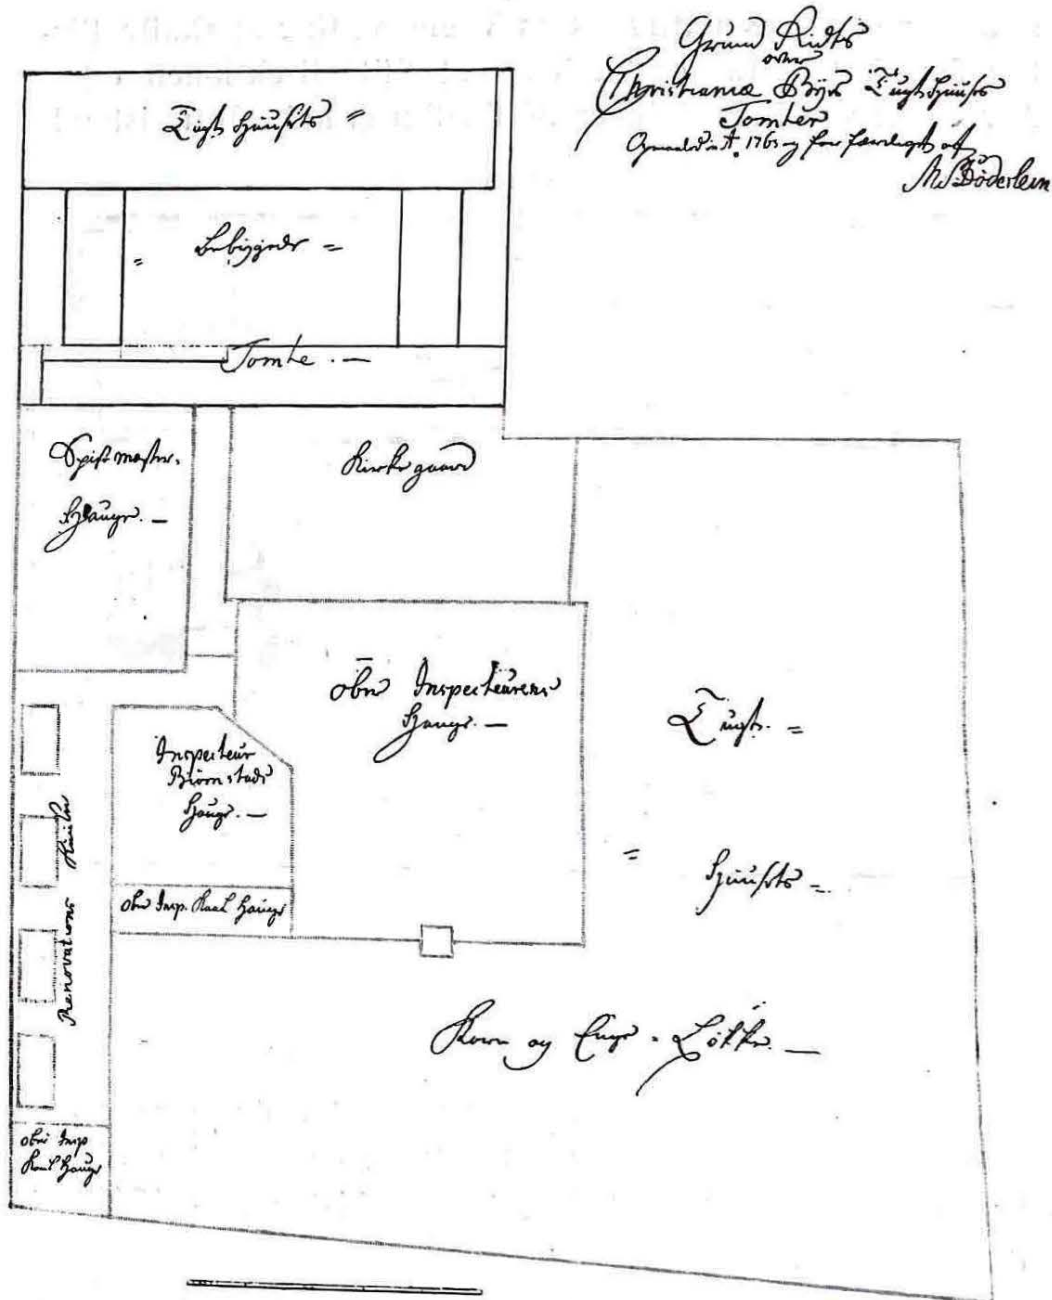 Grund Ridts
over
Christianiæ Byes Tugt Huuses
Tomter
1765
M. Döderlein
Tugt Huusets =
= Bebygede =
Tomte. —
Spisemester.
Hauge. —
Kirkegaard
Ober Inspecteurens
Hauge. —
Inspecteur
Biørnstads
Hauge. —
Ober Insp. Kaal Hauge
Renovations Kuuler
Ober Insp
Kaal Hauge
Tugt. =
= Huusets =
Korn og Enge = Løkke. —